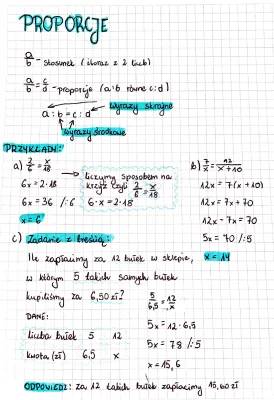 PROPORCJE
a/b - stosunek (iloraz z 2 liczb)
a/b = c/d - proporcje (a:b równe c:d)
a : b = c : d
wyrazy skrajne
wyrazy środkowe
PRZYKŁADY:
a) 2/6 = x/18
6x = 2·18
6x = 36 /:6
x = 6
liczymy sposobem na
krzyż czyli 2/6 = x/18
6·x = 2·18
b) 7/x = 12/x+10
12x = 7(x+10)
12x = 7x+70
12x - 7x = 70
5x = 70 /:5
x = 14
c) Zadanie z treścią:
Ile zapłacimy za 12 bułek w sklepie,
w którym 5 takich samych bułek
kupiliśmy za 6,50 zł?
DANE:
liczba bułek 5 12
kwota (zł) 6,5 x
5/6,5 = 12/x
5x = 12·6,5
5x = 78 /:5
x = 15,6
ODPOWIEDŹ: za 12 takich bułek zapłacimy 15,60 zł